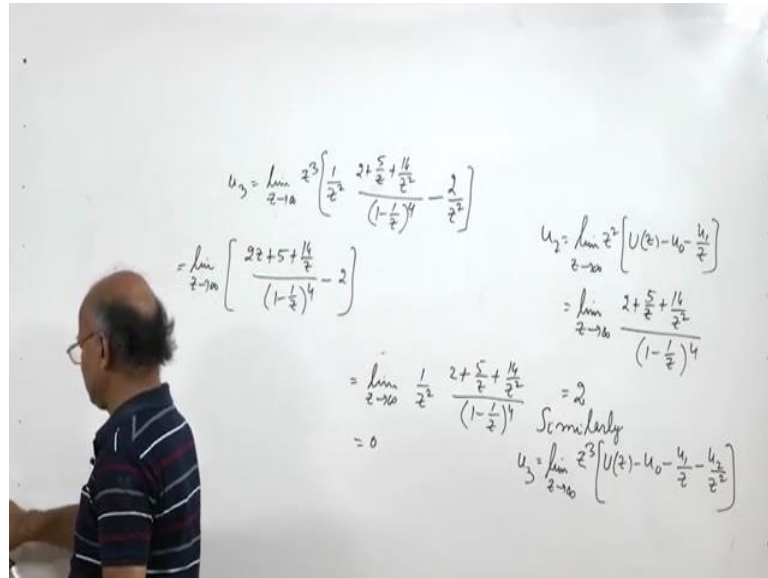 u₃ = lim z→∞ z³ [ 1/z² (2 + 5/z + 14/z²)/(1 - 1/z)⁴ - 2/z² ]
= lim z→∞ [ (2z + 5 + 14/z)/(1 - 1/z)⁴ - 2 ]
= lim z→∞ 1/z² (2 + 5/z + 14/z²)/(1 - 1/z)⁴
= 0
u₂ = lim z→∞ z² [ U(z) - u₀ - u₁/z ]
= lim z→∞ (2 + 5/z + 14/z²)/(1 - 1/z)⁴
= 2
Similarly
u₃ = lim z→∞ z³ [ U(z) - u₀ - u₁/z - u₂/z² ]